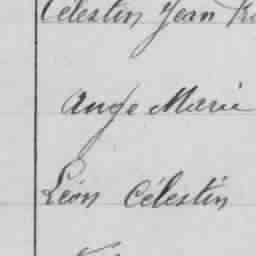 Célestin Jean
Ange Marie
Léon Célestin